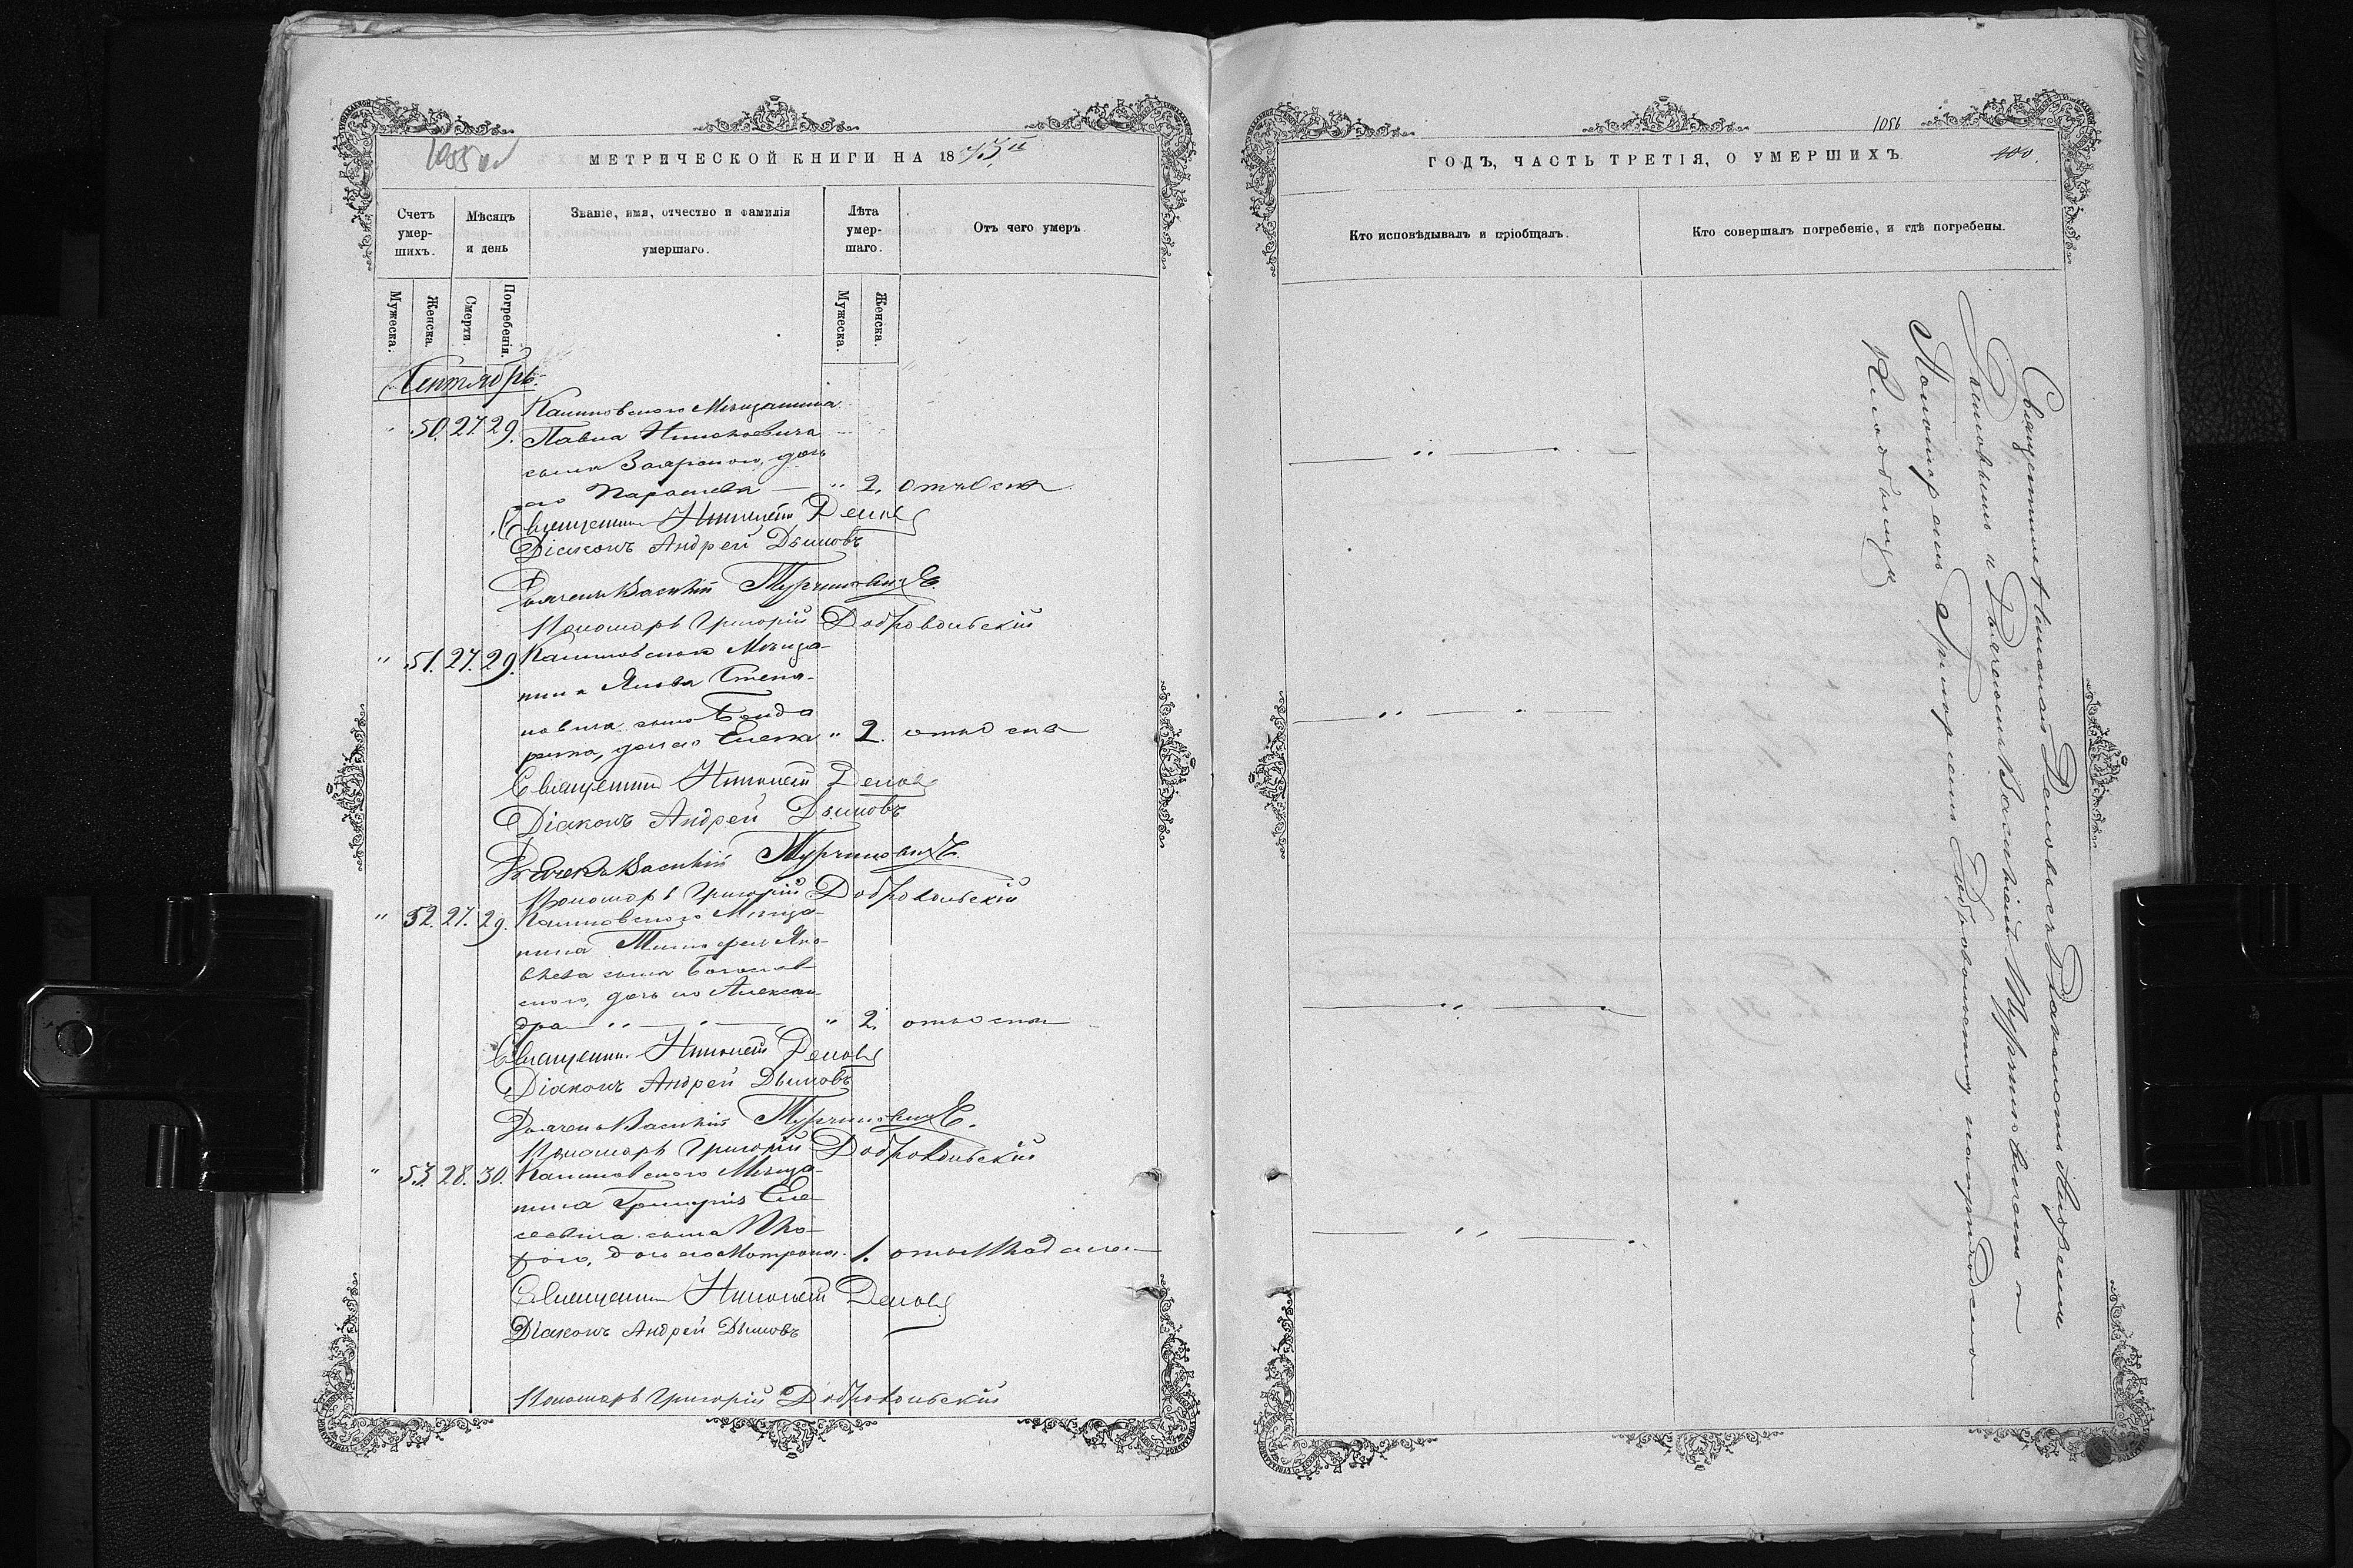 МЕТРИЧЕСКОЙ КНИГИ НА 1873й
Счетъ умер-шихъ.
Мѣсяцъ и день
Званіе, имя, отчество и фамилія умершаго.
Лѣта умер-шаго.
Отъ чего умеръ.
Мужеска.
Женска.
Смерти.
Погребенія.
Мужеска.
Женска.
Сентябрь.
Калиновского Мѣщанина
" 50. 27. 29. Павла
сына Заярного, дочь
его Параскева — " 2. отъ Оспы
Священникъ Николай Деловъ
Діаконъ Андрей Дымовъ
Дьячекъ Василій Турчиновичъ
Пономарь Григорій Добровольскій
" 51. 27. 29. Калиновского Мѣща-
нина Якова Степа-
новича сына Бонда
ренка, дочь его Елена " 2. отъ Оспы
Священникъ Николай Деловъ
Діаконъ Андрей Дымовъ
Дьячекъ Василій Турчиновичъ
Пономарь Григорій Добровольскій
" 52. 27. 29. Калиновского Мѣща-
нина Тимофея Яко-
влева сына Богослав-
ского, дочь его Алексан-
дра — " — " — " 2. отъ Оспы
Священникъ Николай Деловъ
Діаконъ Андрей Дымовъ
Дьячекъ Василій Турчиновичъ
Пономарь Григорій Добровольскій
" 53. 28. 30. Калиновского Мѣща-
нина Григорія Еле-
сеевича сына
дочь его Матрона. 1. отъ Младенч—
Священникъ Николай Деловъ
Діаконъ Андрей Дымовъ
Пономарь Григорій Добровольскій
1056
ГОДЪ, ЧАСТЬ ТРЕТІЯ, О УМЕРШИХЪ.
400.
Кто исповѣдывалъ и пріобщалъ.
Кто совершалъ погребеніе, и гдѣ погребены.
— " —
— " —
— " —
— " —
Священникъ Николай Деловъ съ Діакономъ Андреемъ
Дымовымъ и Дьячекомъ Василіемъ Турчиновичемъ и
Пономаремъ Григоріемъ Добровольскимъ на приходскомъ
кладбищѣ